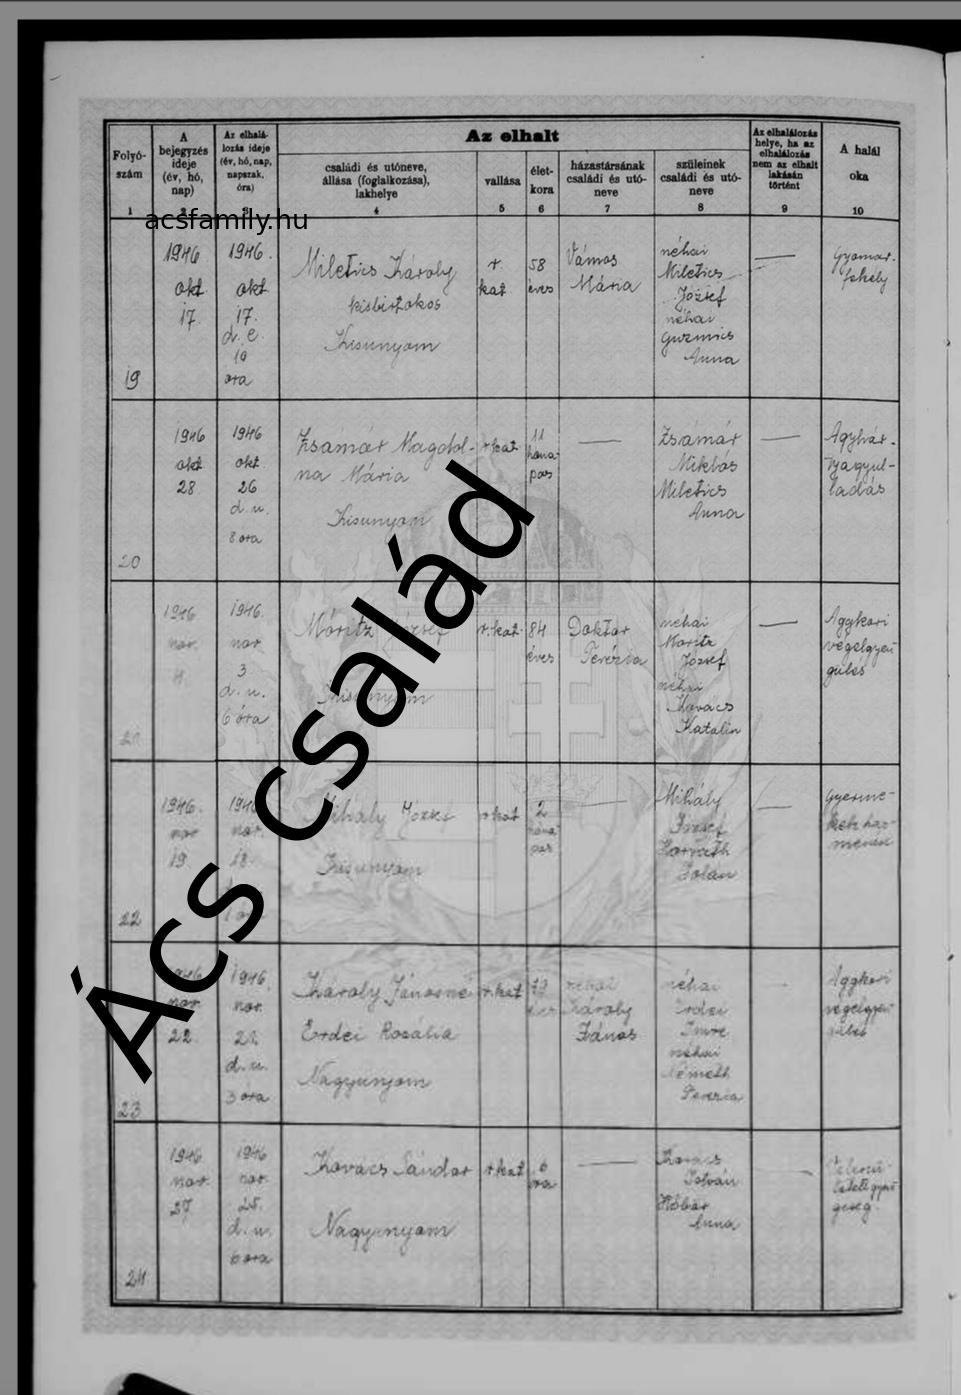 Folyó-
szám
1
A
bejegyzés
ideje
(év, hó,
nap)
2
Az elhalá-
lozás ideje
(év, hó, nap,
napszak,
óra)
3
Az elhalt
családi és utóneve,
állása (foglalkozása),
lakhelye
4
vallása
5
élet-
kora
6
házastársának
családi és utó-
neve
7
szüleinek
családi és utó-
neve
8
Az elhalálozás
helye, ha az
elhalálozás
nem az elhalt
lakásán
történt
9
A halál
oka
10
acsfamily.hu
19
1946
okt
17.
1946.
okt
17.
d. e.
10
óra
Miletics Károly
kisbirtokos
Kisunyom
r.
kat.
58
éves
Vámos
Mária
néhai
Miletics
József
néhai
Guzmics
Anna
Gyomor-
fekély
20
1946
okt
28
1946
okt.
26
d. u.
8 óra
Zsámár Magdol-
na Mária
Kisunyom
r.kat.
11
hóna-
pos
—
Zsámár
Miklós
Miletics
Anna
—
Agyhár-
tyagyul-
ladás
21
1946
nov.
1946.
nov
3
d. u.
6 óra
Móritz József
Kisunyom
r.kat.
84
éves
Doktor
Terézia
néhai
Moritz
József
néhai
Kovács
Katalin
—
Aggkori
végelgyen-
gülés
22
1946.
nov
19
1946
nov.
18.
Mihály József
Kisunyom
r.kat
2
hóna-
pos
—
Mihály
József
Horváth
Jolán
—
Gyerme-
23
1946
nov.
22.
1946.
nov.
21.
d. u.
3 óra
Károly Jánosné
Erdei Rozália
Nagyunyom
r.kat
79
éves
néhai
Károly
János
néhai
Erdei
Imre
néhai
Németh
Terézia
Aggkori
végelgyen-
gülés
24
1946
nov.
27
1946
nov.
25.
d. u.
6 óra
Kovács Sándor
Nagyunyom
r.kat
6
óra
—
Kovács
István
Anna
—
geség
Ács család